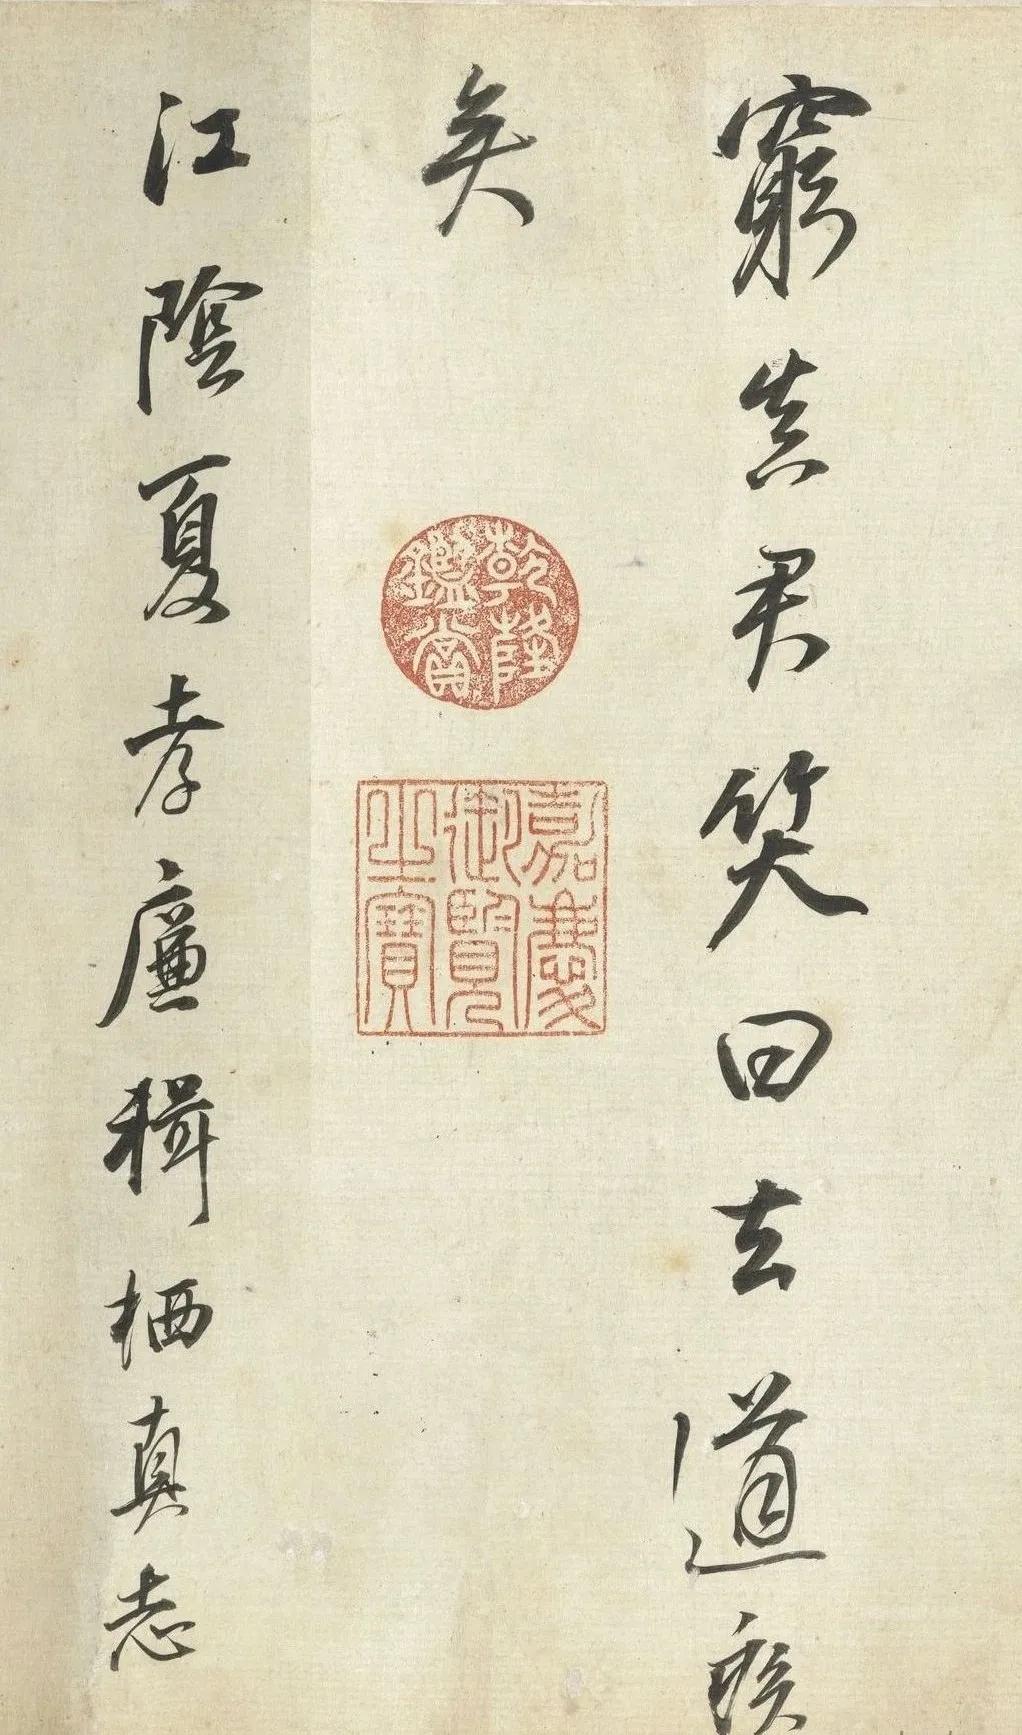 窮真君笑曰去道
矣
乾隆
鑑賞
嘉慶
御覽
之寶
江陰夏孝廉輯栖真志